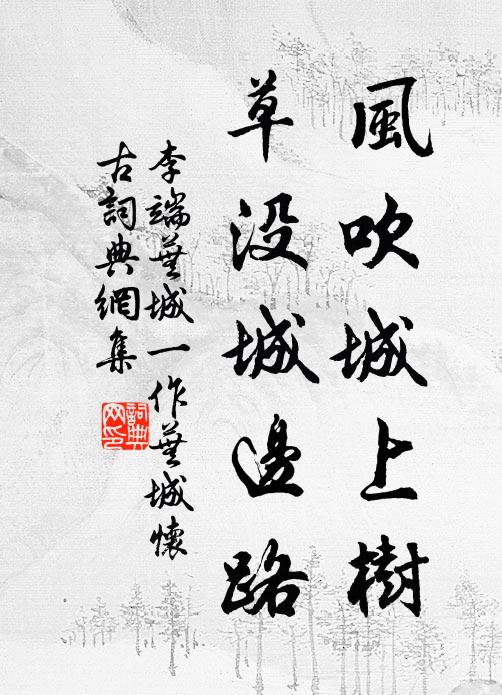 風吹城上樹
草没城邊路
李端蕪城一作蕪城懷
古詞典網集
詞典
网印